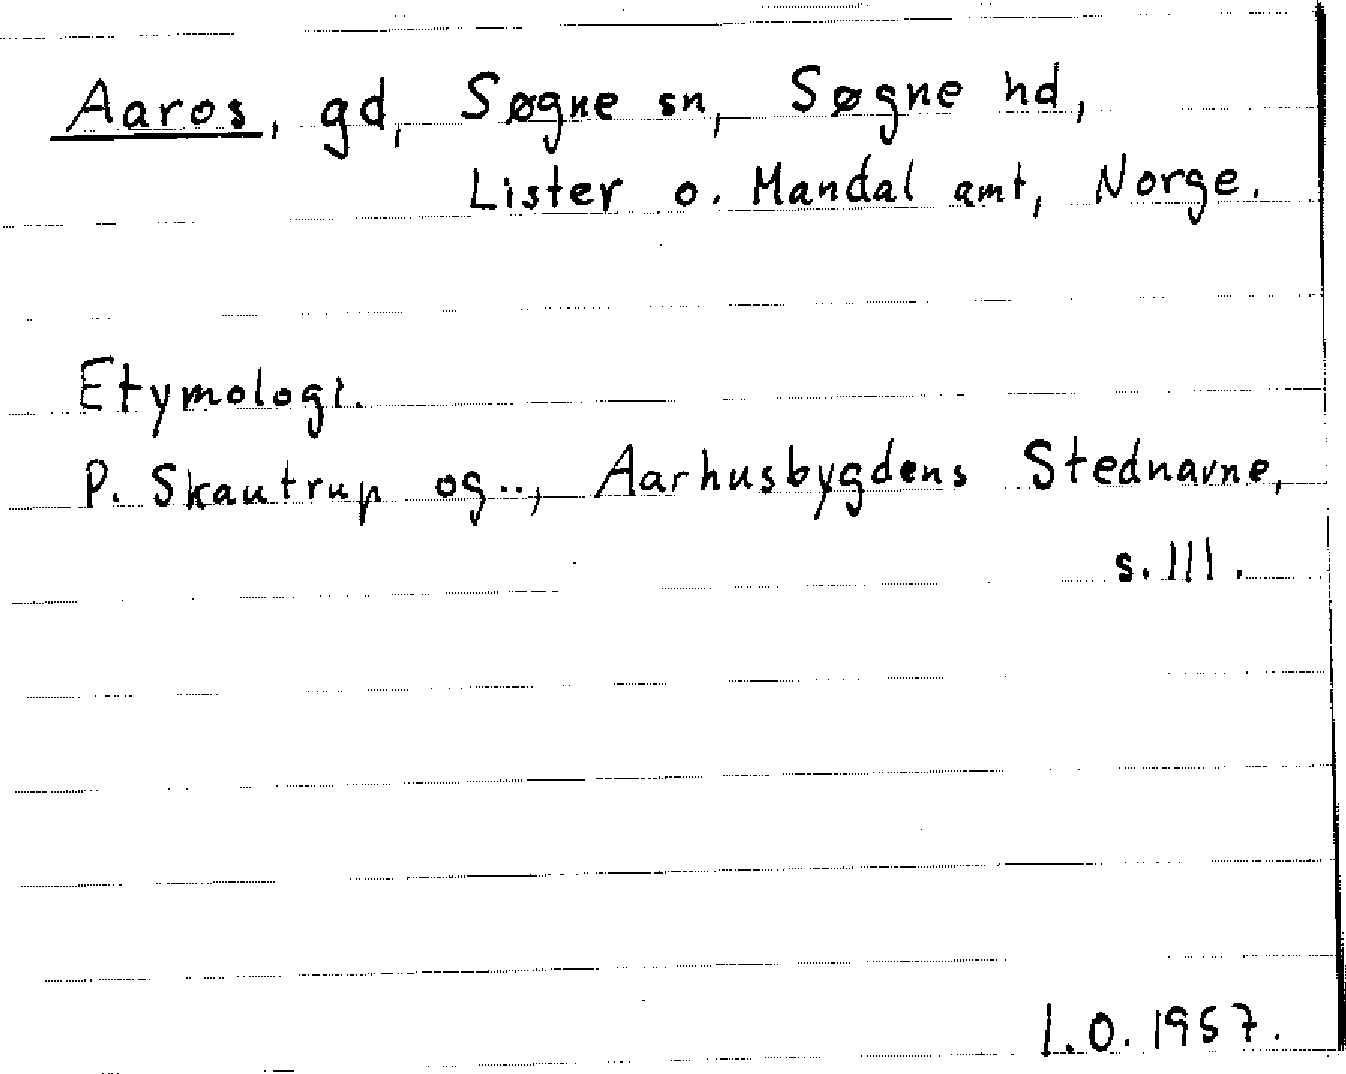 Aaros, gd, Søgne sn, Søgne hd,
Lister o. Mandal amt, Norge.
Etymologi.
P. Skautrup og.., Aarhusbygdens Stednavne,
s. 111.
L.O. 1957.